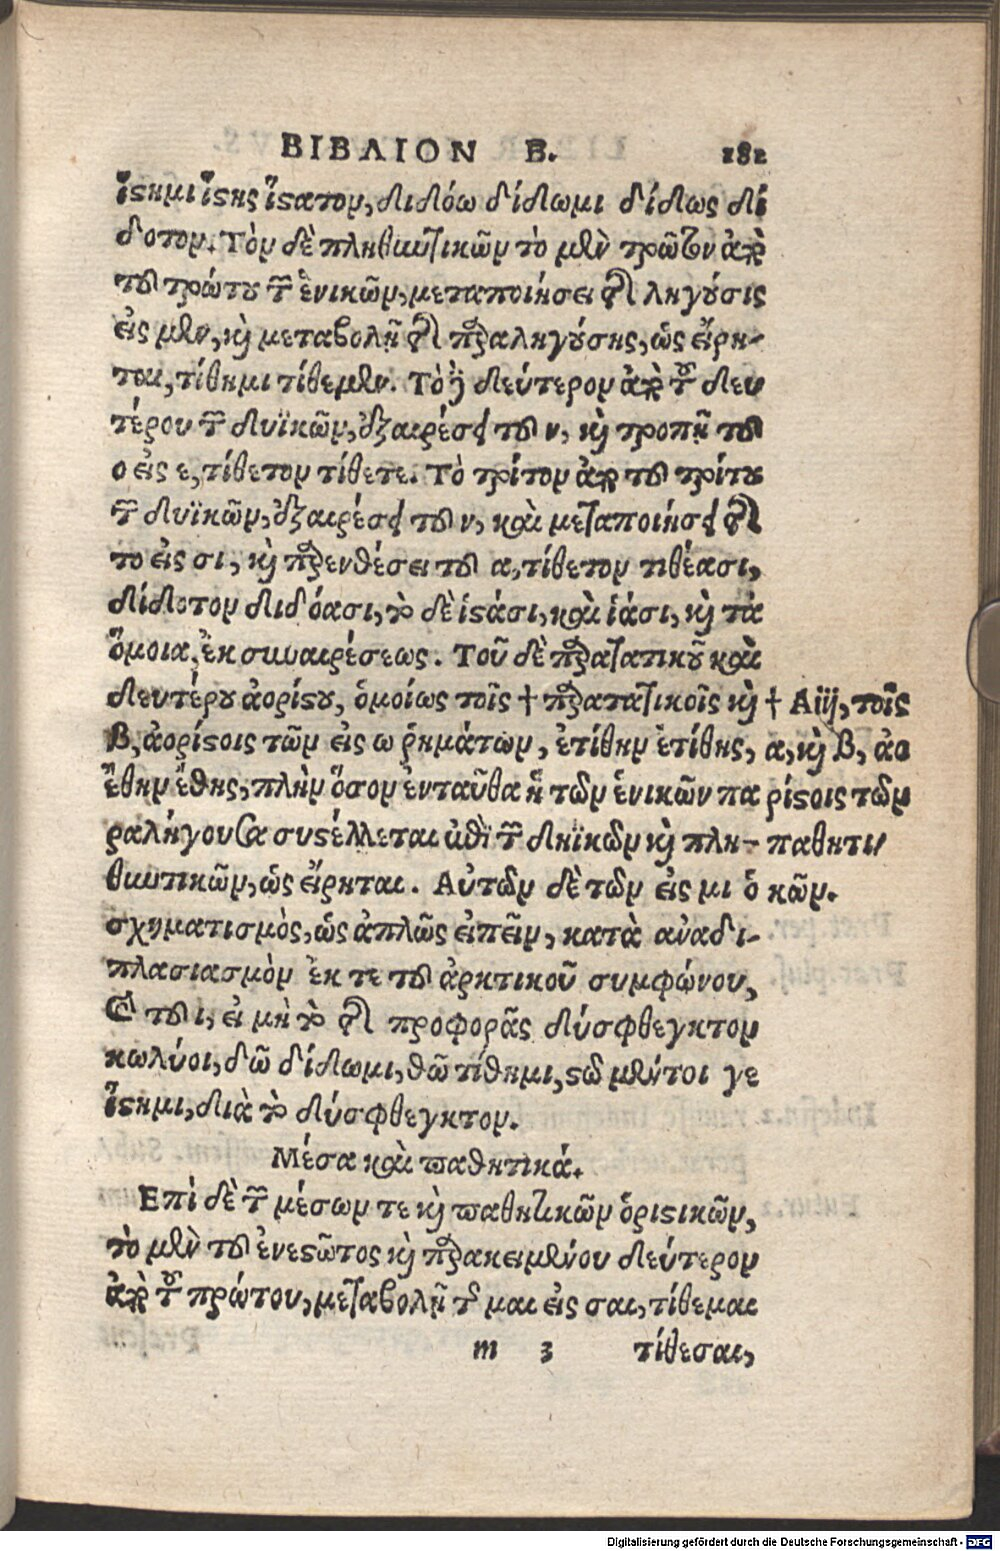 ΒΙΒΛΙΟΝ Β. 181
ἵστημι ἵστης ἵστατον, διδόω δίδωμι δίδως δί
δοτον. Τὸν δὲ πληθυντικῶν τὸ μὲν πρῶτον ἀπὸ
τοῦ πρώτου τῶν ἑνικῶν, μεταποιήσει τῆς ληγούσις
εἰς μεν, καὶ μεταβολῇ τῆς παραληγούσης, ὡς εἴρη-
ται, τίθημι τίθεμεν. Τὸ δὲ δεύτερον ἀπὸ τοῦ δευ
τέρου τῶν δυϊκῶν, ἐξαιρέσει τοῦ ν, καὶ τροπῇ τοῦ
ο εἰς ε, τίθετον τίθετε. Τὸ τρίτον ἀπὸ τοῦ τρίτου
τῶν δυϊκῶν, ἐξαιρέσει τοῦ ν, καὶ μεταποιήσει τῆς
το εἰς σι, καὶ παρενθέσει τοῦ α, τίθετον τιθέασι,
δίδοτον διδόασι, τὸ δὲ ἱστάσι, καὶ ἱάσι, καὶ τὰ
ὅμοια, ἐκ συναιρέσεως. Τοῦ δὲ παρατατικοῦ καὶ
δευτέρου ἀορίστου, ὁμοίως τοῖς † παρατατικοῖς καὶ
β, ἀορίστοις τῶν εἰς ω ῥημάτων, ἐτίθην ἐτίθης,
ἔθην ἔθης, πλὴν ὅσον ἐνταῦθα ἡ τῶν ἑνικῶν πα
ραλήγουσα συστέλλεται ἐπὶ τῶν δηϊκῶν καὶ πλη-
θυντικῶν, ὡς εἴρηται. Αὐτῶν δὲ τῶν εἰς μι ὁ
σχηματισμὸς, ὡς ἁπλῶς εἰπεῖν, κατὰ ἀναδι-
πλασιασμὸν ἐκ τε τοῦ ἀρκτικοῦ συμφώνου,
καὶ τοῦ ι, εἰ μὴ τὸ τῆς προφορᾶς δύσφθεγκτον
κωλύοι, δῶ δίδωμι, θῶ τίθημι, στῶ μέντοι γε
ἵστημι, διὰ τὸ δύσφθεγκτον.
† Αιιj, τοῖς
α, καὶ β, ἀο
ρίστοις τῶν
παθητι
κῶν.
Μέσα καὶ παθητικά.
Επὶ δὲ τῶν μέσων τε καὶ παθητικῶν ὁριστικῶν,
τὸ μὲν τοῦ ἐνεστῶτος καὶ παρακειμένου δεύτερον
ἀπὸ τοῦ πρώτου, μεταβολῇ τῆς μαι εἰς σαι, τίθεμαι
m 3 τίθεσαι,
Digitalisierung gefördert durch die Deutsche Forschungsgemeinschaft - DFG